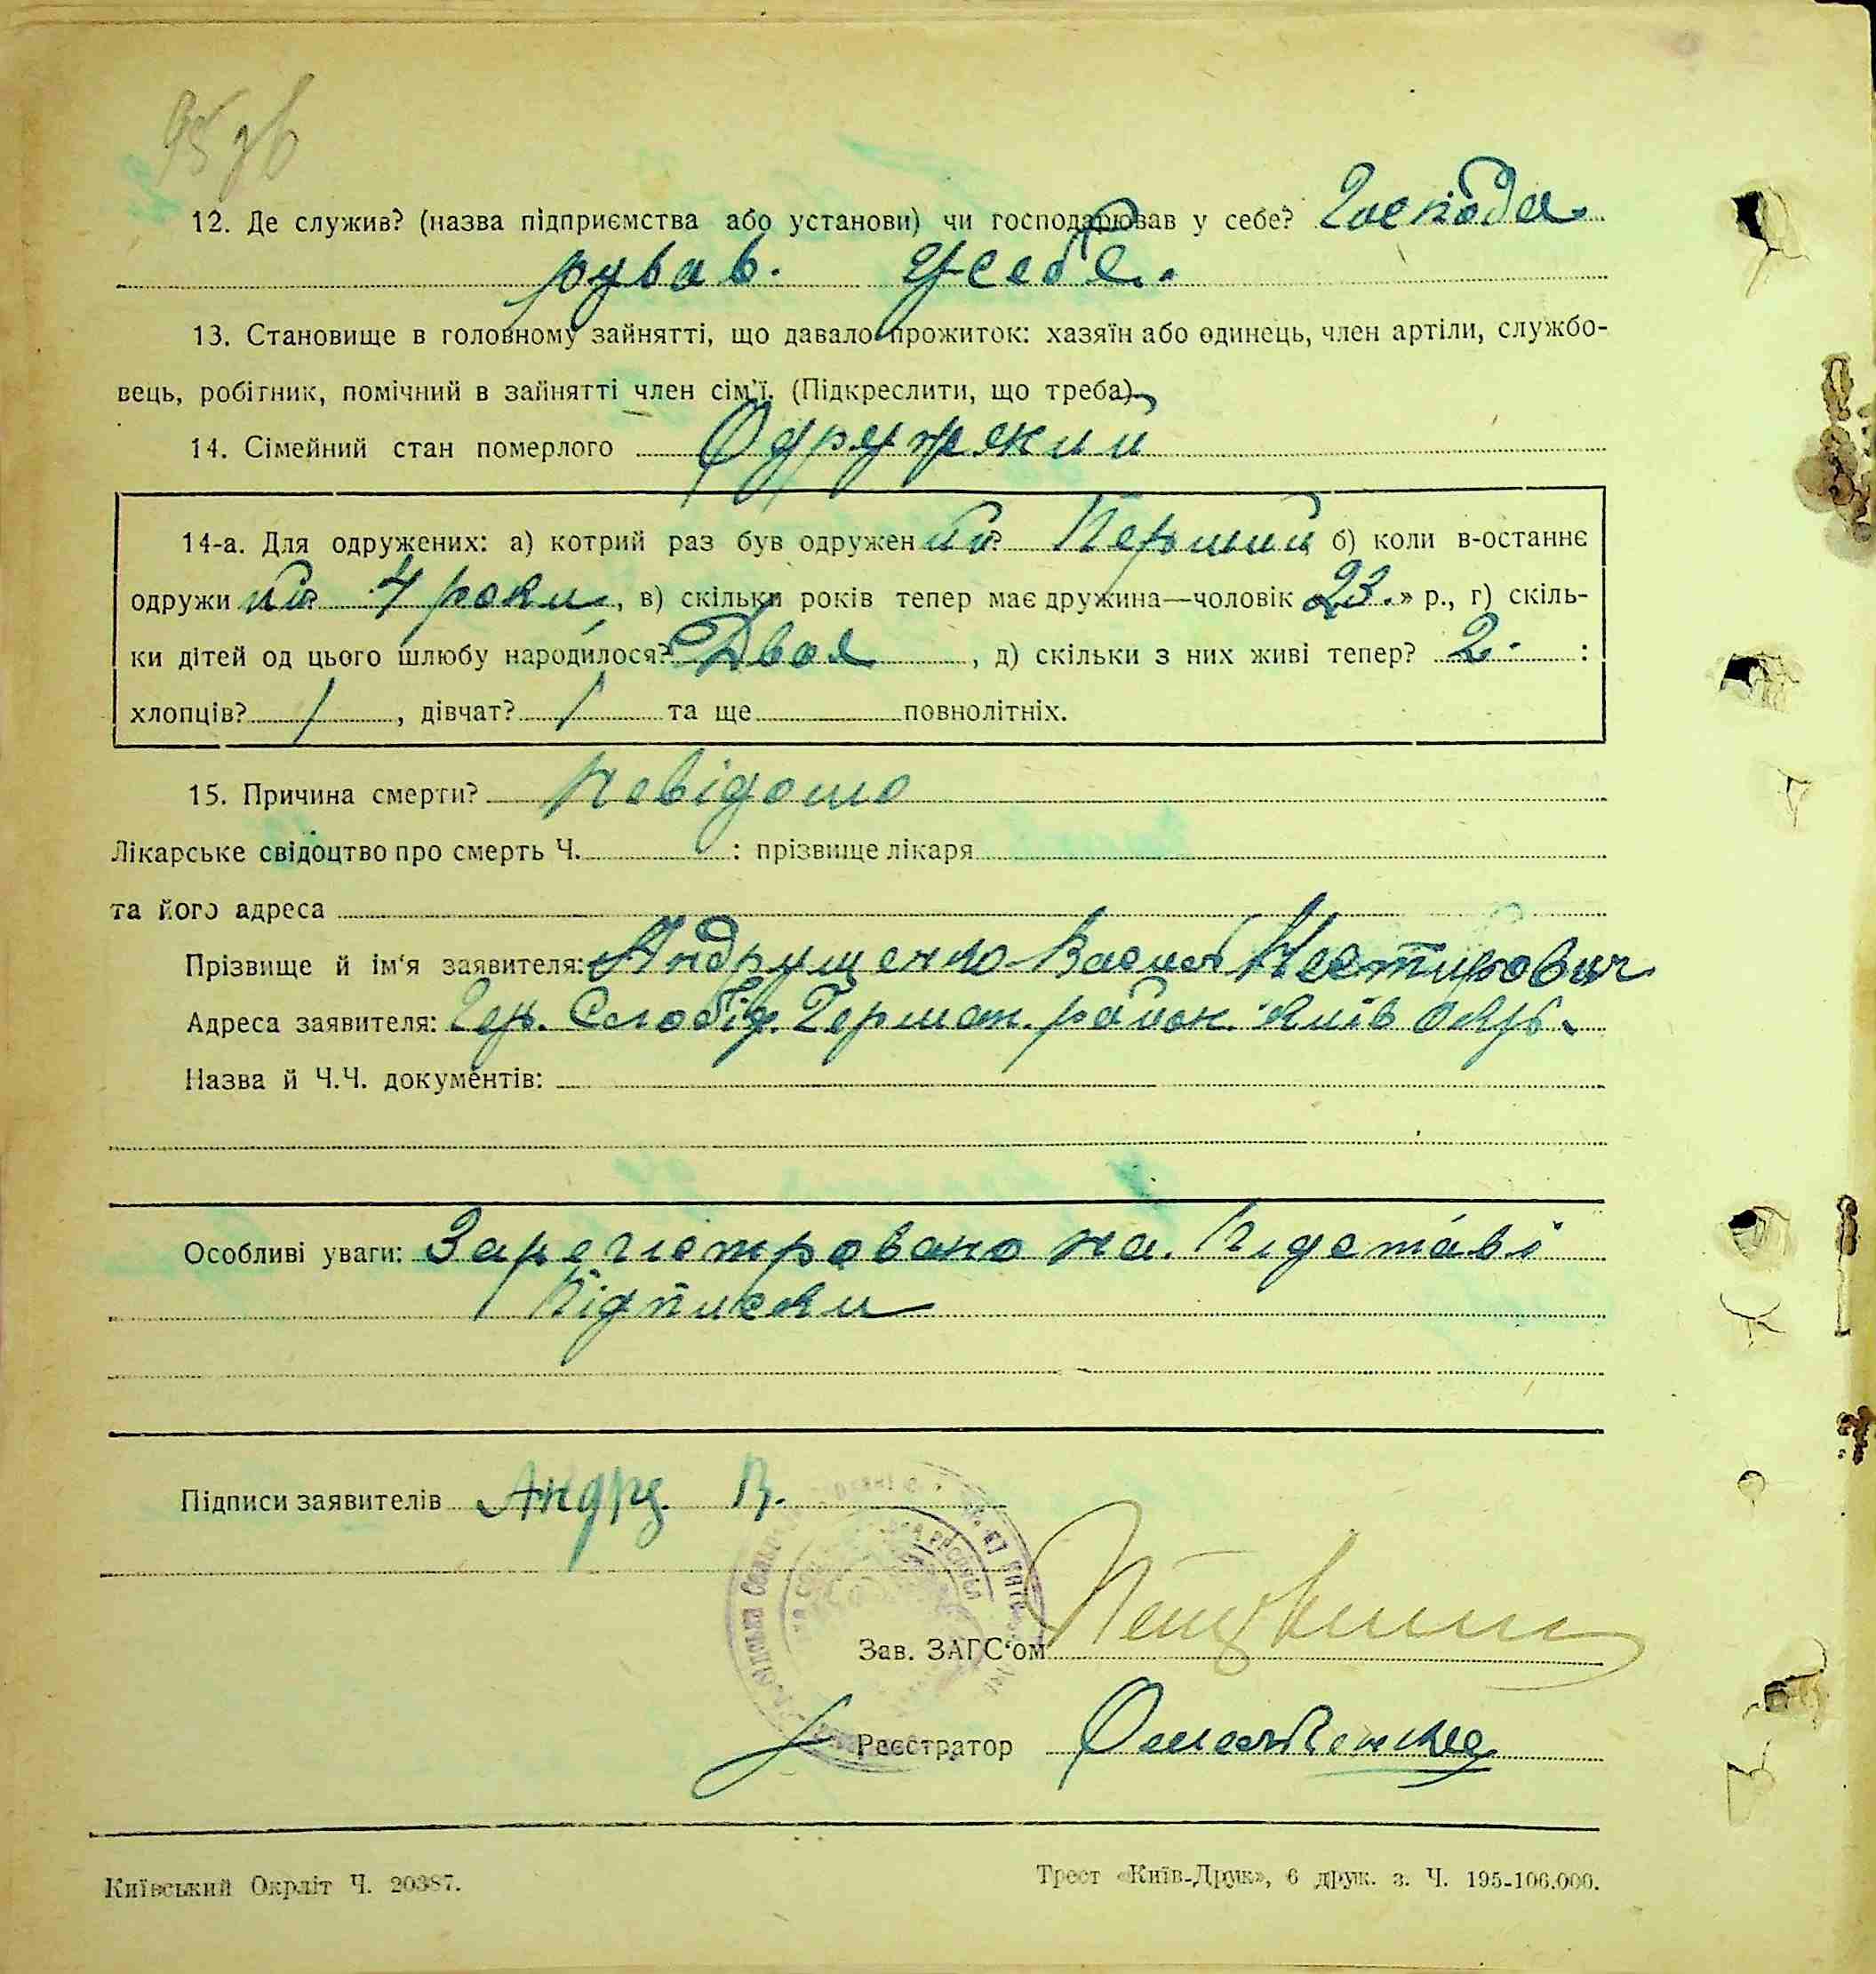 95 зв
12. Де служив? (назва підприємства або установи) чи господарював у себе? Господа
рував. У себе.
13. Становище в головному зайнятті, що давало прожиток: хазяїн або одинець, член артіли, службо-
вець, робітник, помічний в зайнятті член сім'ї. (Підкреслити, що треба)
14. Сімейний стан померлого Одружений
14-а. Для одружених: а) котрий раз був одружен ий? Перший б) коли в-останнє
одружи 4 роки, в) скільки років тепер має дружина—чоловік 23.» р., г) скіль-
ки дітей од цього шлюбу народилося? Двоє, д) скільки з них живі тепер? 2 :
хлопців? 1, дівчат? 1 та ще повнолітніх.
15. Причина смерти? Невідомо
Лікарське свідоцтво про смерть Ч. : прізвище лікаря
та його адреса
Прізвище й ім'я заявителя: Андрущенко Василь Нестирович
Адреса заявителя: Гер. Слобід. Герман. район. Київ окр.
Назва й Ч.Ч. документів:
Особливі уваги: Зарегістровано на Підставі
Підписки
Підписи заявителів Андру. В.
Зав. ЗАГС'ом
Реєстратор
Київський Окрліт Ч. 20387.
Трест «Київ-Друк», 6 друк. з. Ч. 195-106.000.